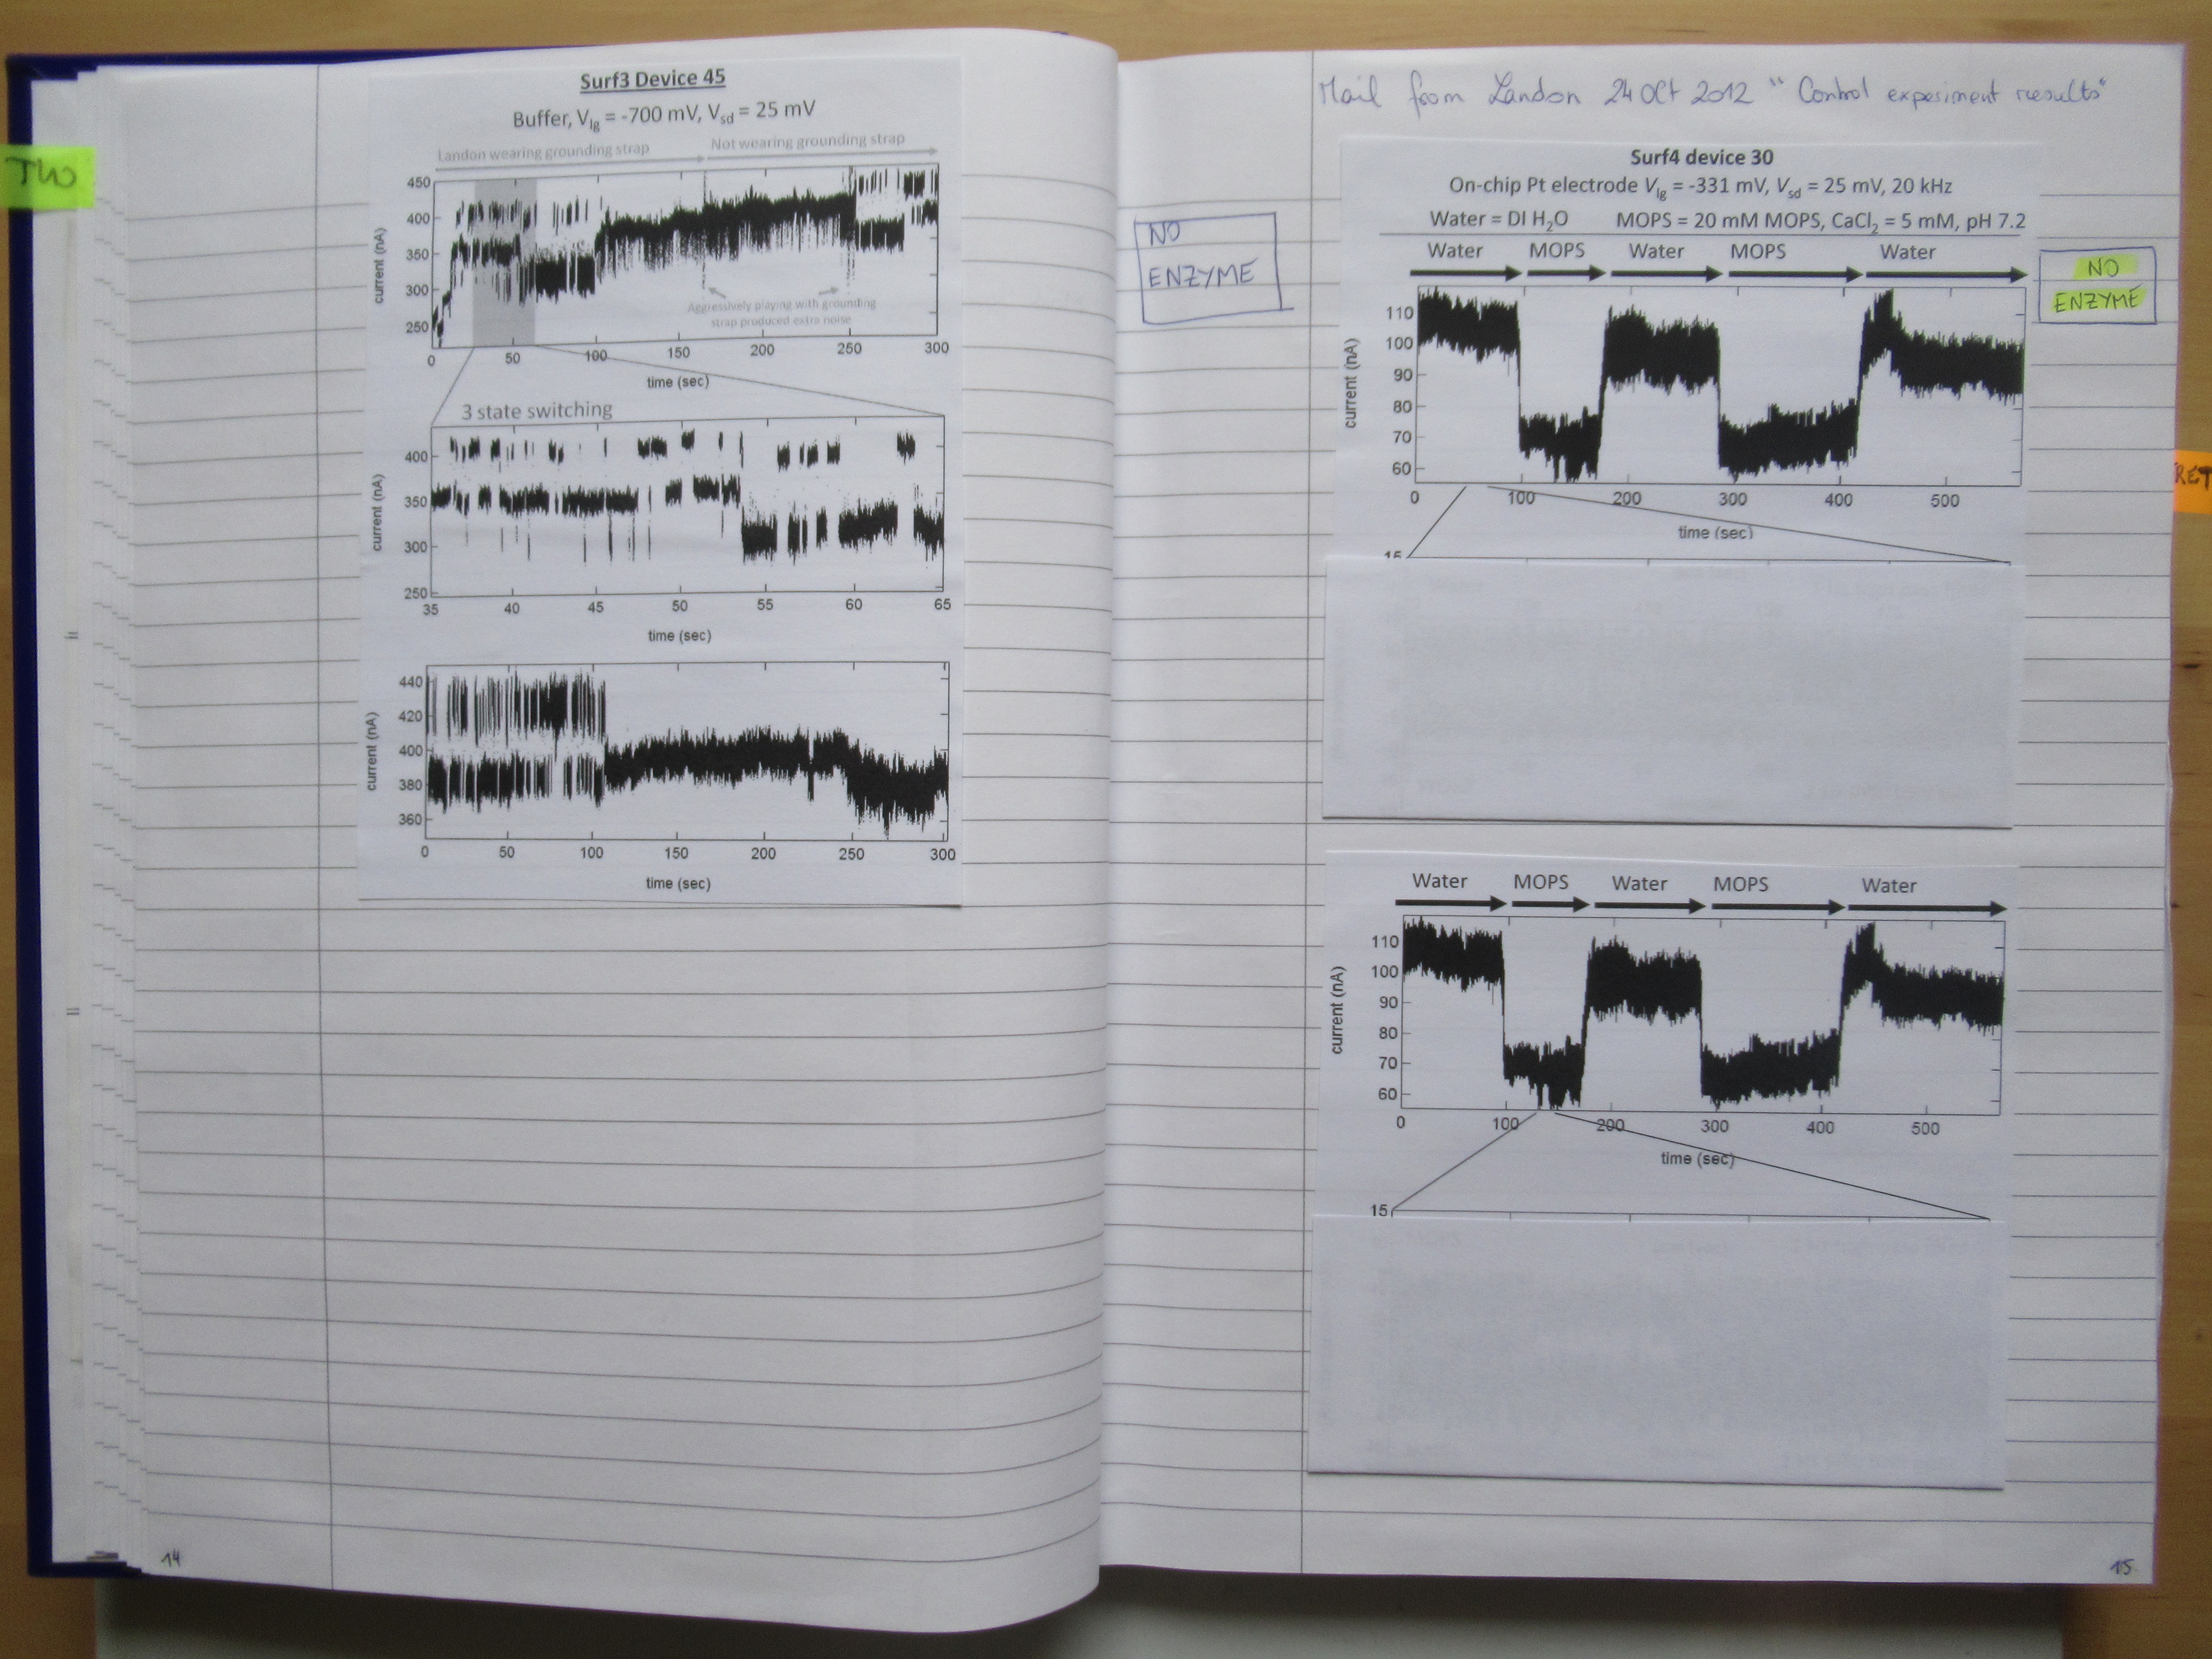 TWO
Surf3 Device 45
Buffer, Vlg = -700 mV, Vsd = 25 mV
Landon wearing grounding strap
Not wearing grounding strap
450
400
350
300
250
current (nA)
Aggressively playing with grounding
strap produced extra noise
0 50 100 150 200 250 300
time (sec)
3 state switching
400
350
300
250
current (nA)
35 40 45 50 55 60 65
time (sec)
440
420
400
380
360
current (nA)
0 50 100 150 200 250 300
time (sec)
14
NO
ENZYME
Mail from Landon 24 Oct 2012 "Control experiment results"
Surf4 device 30
On-chip Pt electrode Vlg = -331 mV, Vsd = 25 mV, 20 kHz
Water = DI H2O MOPS = 20 mM MOPS, CaCl2 = 5 mM, pH 7.2
Water MOPS Water MOPS Water
NO
ENZYME
110
100
90
80
70
60
current (nA)
0 100 200 300 400 500
time (sec)
15
Water MOPS Water MOPS Water
110
100
90
80
70
60
current (nA)
0 100 200 300 400 500
time (sec)
15
15